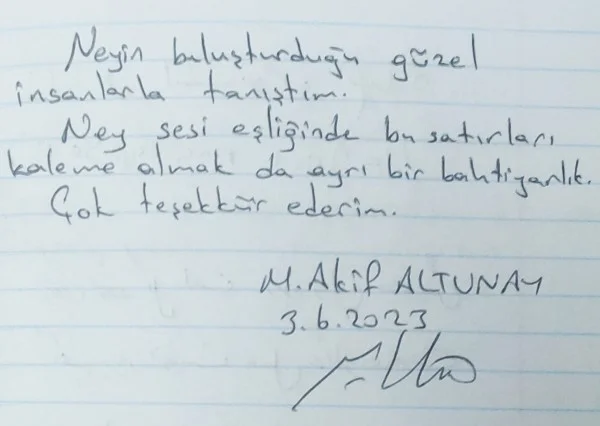 Neyin buluşturduğu güzel
insanlarla tanıştım.
Ney sesi eşliğinde bu satırları
kaleme almak da ayrı bir bahtiyarlık.
Çok teşekkür ederim.
M. Akif ALTUNAY
3.6.2023